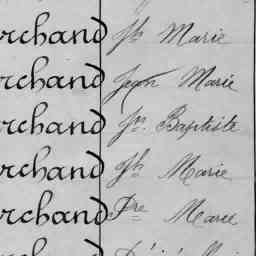 rchand Jh Marie
rchand Jean Marie
rchand Jn. Baptiste
rchand Jh Marie
rchand Pre Marie
rchand Désiré